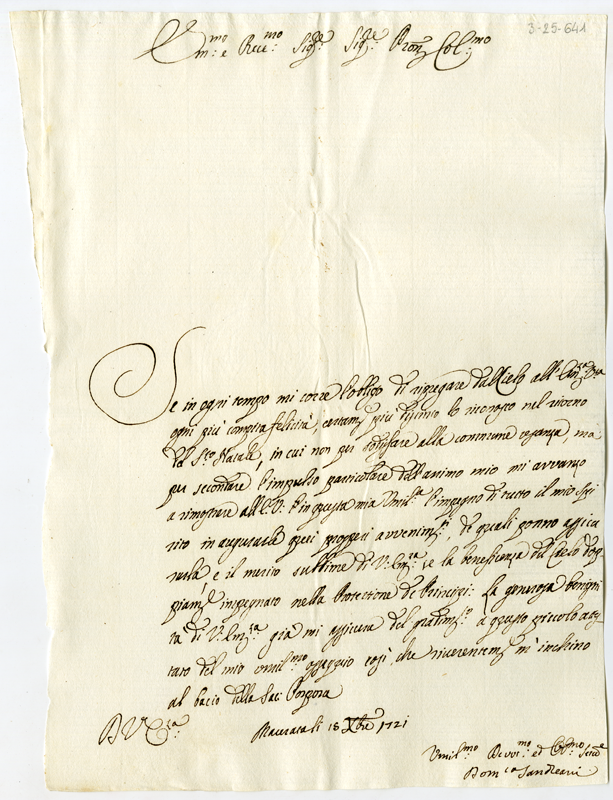 3-25-641
Em:mo e Rev:mo Sig:re Sig:re Pron Col:mo
Se in ogni tempo mi corre l'obligo di impegare dal Cielo all' Em:za V:ra
ogni più compita felicità, certam:te più distinto lo riconosco nel ritorno
del S:to Natale, in cui non per sodisfare alla commune usanza, ma
per secondare l'impulso particolare dell'animo mio mi avvanzo
a rimostrare all' E: V: in questa mia Umil:a l'impegno di tutto il mio Spi
rito in augurarle quei prosperi avvenim:ti, de quali ponno assicu
rarla, e il merito sublime di V: Em:za, e la beneficenza del Cielo dop
piam:te impegnato nella Protectione de Principi: La generosa benigni
tà di V: Em:za già mi assicura del gradim:to a questo piccolo atte
tato del mio umil:mo ossequio così, che riverentem:te m'inchino
al bacio della Sac: Porpora
D V: E:za
Macerata li 18 Xbre 1721
Umil:mo Devot:mo ed Obb:mo Serv:e
Dom:co